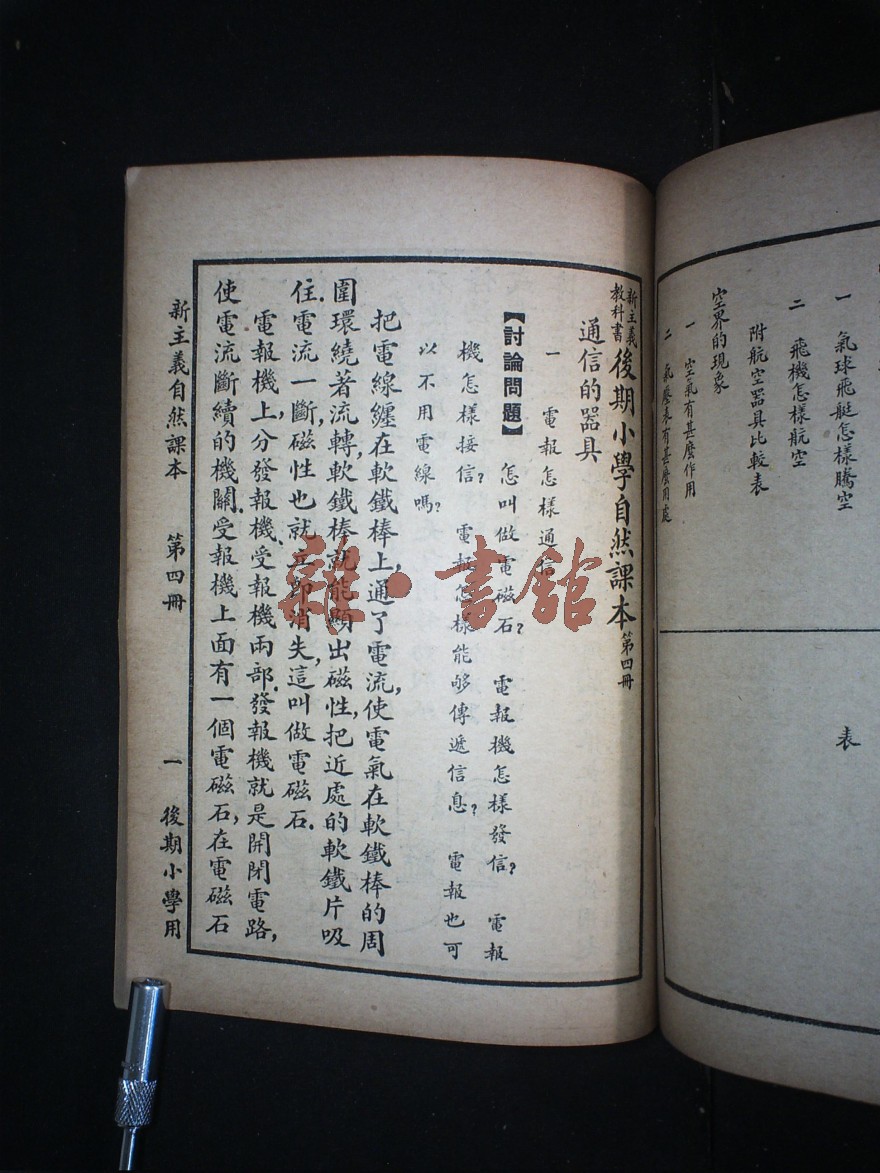 一 氣球飛艇怎樣騰空
二 飛機怎樣航空
附航空器具比較表
空界的現象
一 空氣有甚麼作用
二 氣壓表有甚麼用處
表
新主義教科書後期小學自然課本 第四冊
通信的器具
一 電報怎樣通信
【討論問題】 怎叫做電磁石? 電報機怎樣發信? 電報
機怎樣接信? 電報怎樣能够傳遞信息? 電報也可
以不用電線嗎?
把電線纏在軟鐵棒上,通了電流,使電氣在軟鐵棒的周
圍環繞著流轉,軟鐵棒就能顯出磁性,把近處的軟鐵片吸
住.電流一斷,磁性也就立即消失,這叫做電磁石.
電報機上分發報機,受報機兩部.發報機就是開閉電路,
使電流斷續的機關.受報機上面有一個電磁石,在電磁石
新主義自然課本 第四冊 一 後期小學用
雜·書館